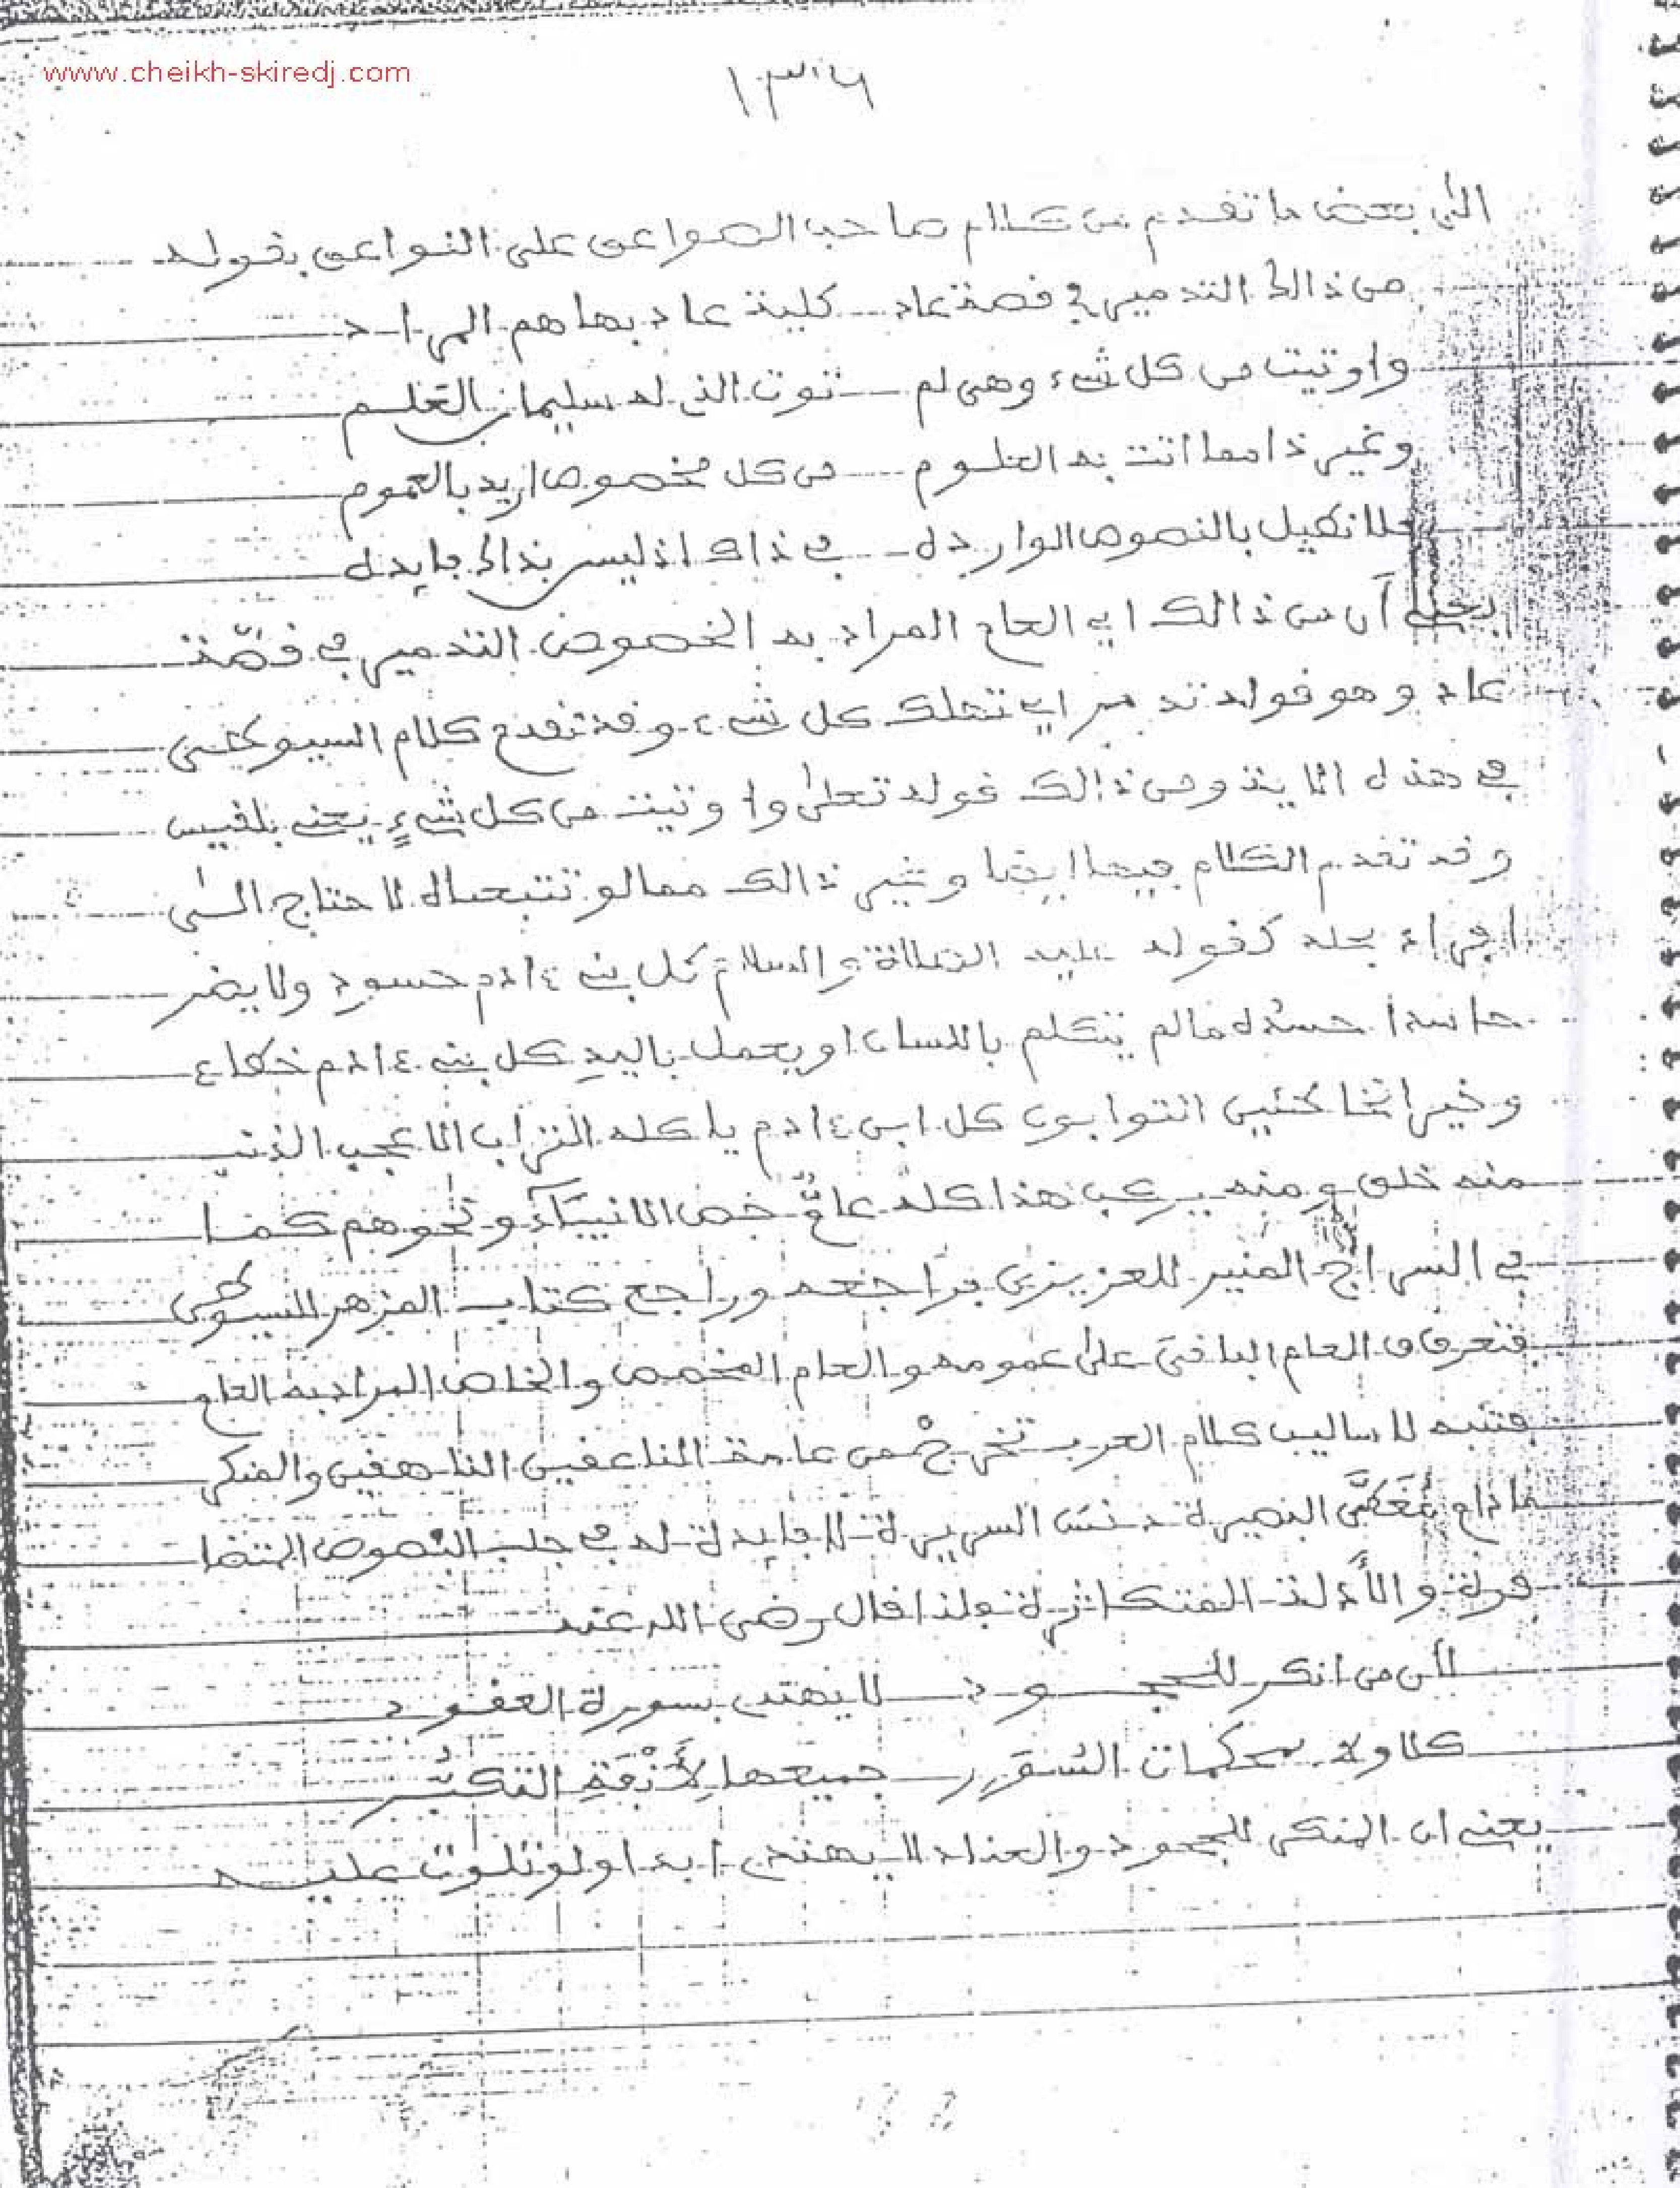 www.cheikh-skiredj.com
١٣٦
الى بعض ما تقدم من كلام صاحب الصواعق على النواعق بقوله
من ذالك التدمير في قصة عاد كلية عاد بها هم المراد
واوتيت من كل شيء وهي لم توت الذي له سليمان التعلم
وغير ذا مما اتت به العلوم من كل مخصوص اريد بالعموم
فلا نطيل بالنصوص الوارده في ذاك اذ ليس بذاك فايده
يعني أن من ذالك اي العام المراد به الخصوص التدمير في قصّة
عاد وهو قوله تدمر اي تهلك كل شيء وقد تقدم كلام السيوطي
في هذه الاية ومن ذالك قوله تعلى واوتيت من كل شيءٍ يعني بلقيس
وقد تقدم الكلام فيها ايضا وغير ذالك مما لو تتبعناه لاحتاج الى
افراده بجلد كقوله عليه الصلاة والسلام كل بني ءادم حسود ولا يضر
حاسدا حسده مالم يتكلم باللسان او يعمل باليدِ كل بني ءادم خطاء
وخير الخطئين التوابون كل ابن ءادم ياكله التراب الا عجب الذنب
منه خلق ومنه يركب هذا كله عامٌّ خص الانبيآء ونحوهم كما
في السراج المنير للعزيزي فراجعه وراجع كتاب المزهر للسيوطي
فتعرف العام الباقي على عمومه والعام المخصص والخاص المراد به العام
فتنبه لاساليب كلام العرب تخرج من عامة الناعقين الناهقين والمنكر
مادام مُغَطَّى البصيرة دنس السريرة لا فايدة له في جلب النصوص المتضا
فرة والأدلة المتكاثرة ولذا قال رضي الله عنه
لان من انكر للجحود لا يهتدي بسورة العقود
كلا ولا بمحكمات السُّوَرِ جميعها لِأَنْفَةِ التكبّر
يعني ان المنكر للجحود والعناد لا يهتدي ابدا ولو تلوت عليه